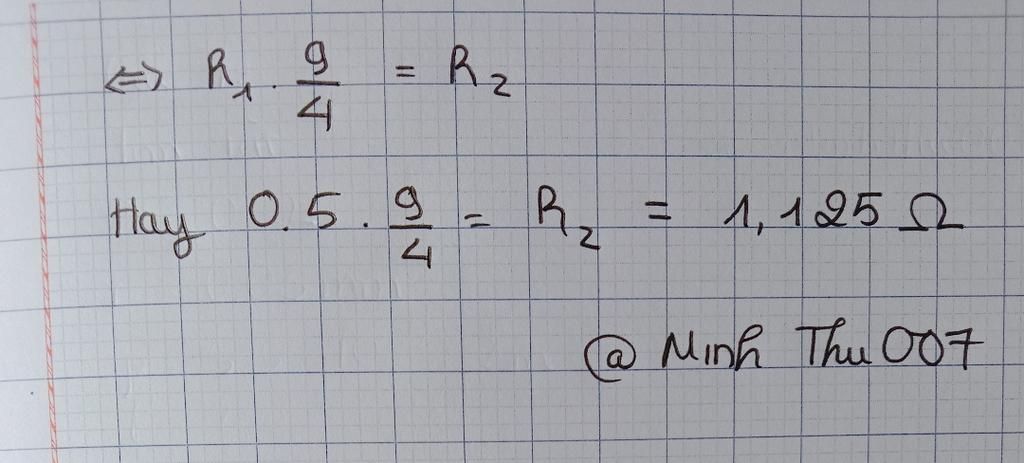 ⇔ R₁ . 9/4 = R₂
Hay 0.5 . 9/4 = R₂ = 1,125 Ω
@ Minh Thu 007